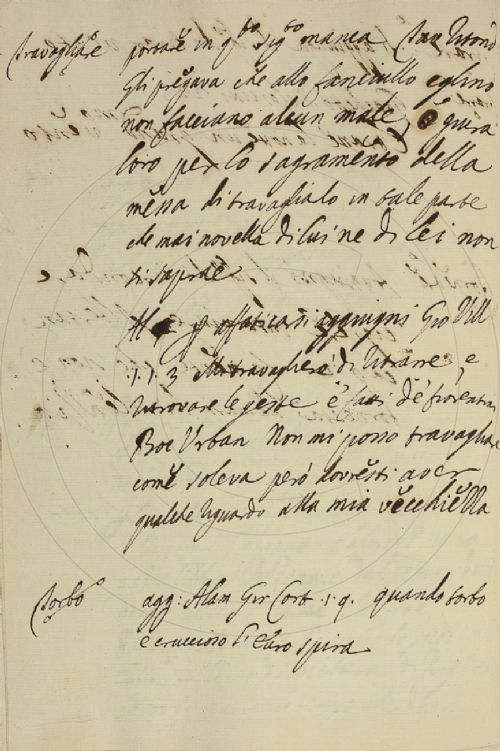 travagliare portare in q.to sig.to manca
gli pregava che allo fanciullo eglino
non facciano alcun male, e giura
loro per lo sagramento della
messa di travaglialo in tale parte
che mai novella di lui ne di lei non
si saprae
affaticarsi aggiugni Gio Vill
1. 1. 3 Mi travagliero di ritrarre, e
ritrovare le geste e fatti de fiorentin
Boc Urban Non mi posso travagliare
come soleva però dovresti aver
qualche riguardo alla mia vecchiella
torbo agg: Alam Gir Cort. 1. 9. quando torbo
e cruccioso l'Euro spira